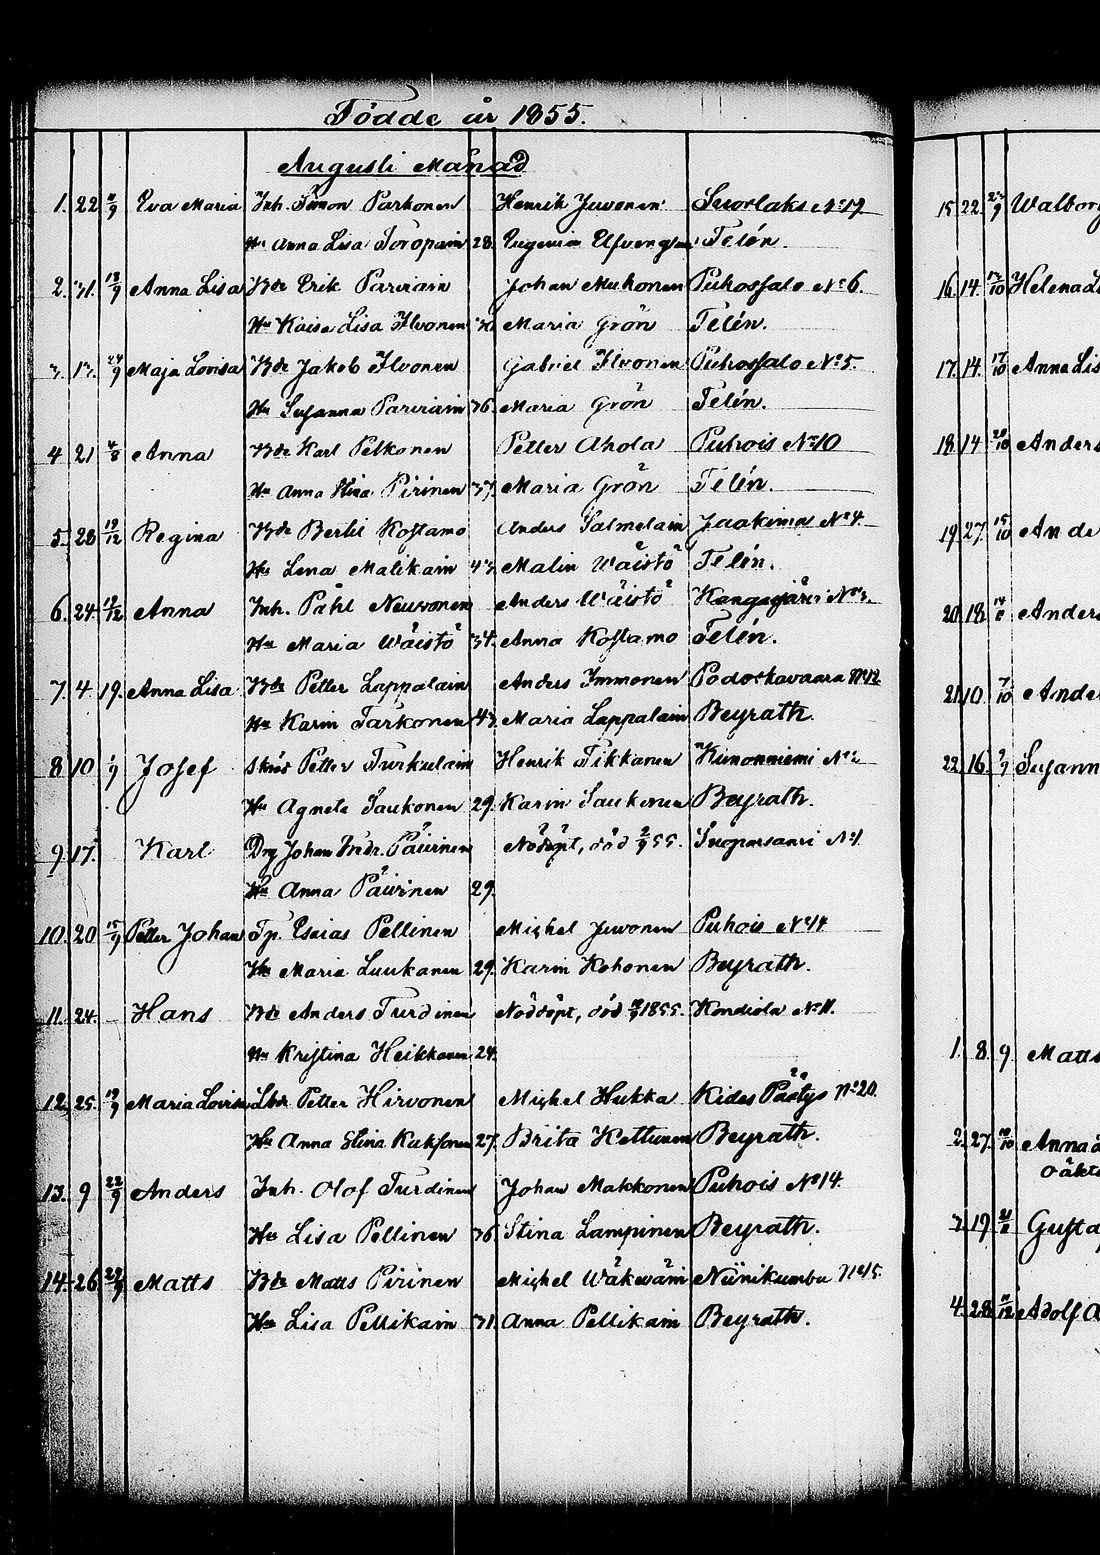 Födde år 1855.
Augusti Månad
1. 22 2/9 Eva Maria Inh. Simon Parkonen Henrik Juvonen Suorlaks No 19
Hu Anna Lisa Toropain 28. Eugenia Telén.
2. 31. Anna Lisa Bde Erik Parviain Johan Muhonen Puhossalo No 6.
Hu Kaisa Lisa Ilvonen 30. Maria Grön Telén.
3. 13. Maja Lovisa Bde Jakob Ilvonen Gabriel Ilvonen Puhossalo No 5.
Hu Susanna Parviain 36. Maria Grön Telén.
4 21 Anna Bde Karl Pelkonen Petter Ahola Puhois No 10
Hu Anna Stina Pirinen 37. Maria Grön Telén.
5. 23 19/12 Regina Bde Bertil Kossamo Anders Salmelain Jaakima No 4.
Hu Lena Matikain 43. Malin Wäistö Telén.
6. 24. 19/12 Anna Inh. Påhl Neuvonen Anders Wäistö Kangasjärvi No 3.
Hu Maria Wäistö 34. Anna Kossamo Telén.
7. 4 19. Anna Lisa Bde Petter Lappalain Anders Immonen Podoskavaara No 12
Hu Karin Tarkonen 43. Maria Lappalain Beyrath.
8 10 1/9 Josef Petter Turkulain Henrik Tikkanen Kunonniemi No 2
Hu Agneta Saukonen 29. Karin Saukonen Beyrath.
9 17. Karl Drg Johan Fridr. Päivinen Nöddöpt, död 2/9 55. No 1.
Hu Anna Päivinen 29.
10. 20 15/9 Petter Johan Tp. Esaias Pellinen Mighel Juvonen Puhois No 14
Hu Maria Luukanen 29. Karin Kohonen Beyrath.
11. 24. Hans Bde Anders Turdinen Nöddöpt, död 1855. Kondiola No 11.
Hu Kristina Heikkanen 24.
12. 25. 19/9 Maria Lovisa Petter Hirvonen Mighel Hukka Kides Päätys No 20.
Hu Anna Stina Kaksonen 27. Brita Kettunen Beyrath.
13. 9 22/9 Anders Inh. Olof Turdinen Johan Makkonen Puhois No 14.
Hu Lisa Pellinen 36. Stina Lampinen Beyrath.
14. 26 29/9 Matts Bde Matts Pirinen Mighel Wäkeväin Niinikumbu No 15.
Hu Lisa Pellikain 31. Anna Pellikain Beyrath.
15 22. Walborg
16. 14. Helena L
17. 14. 17/10 Anna Lis
18. 14 Anders
19. 27. 15/10 Ande
20. 18 Anders
21. 10. 7/10 Ande
22. 16. Susann
1. 8. 9 Matts
2. 27. Anna
oäkta
3. 19. Gusta
4. 28 11/12 Adolf A